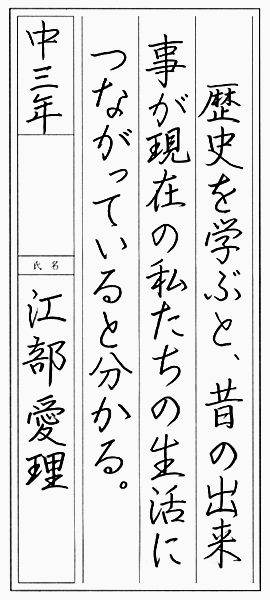 歴史を学ぶと、昔の出来
事が現在の私たちの生活に
つながっていると分かる。
中三年
氏名
江部愛理